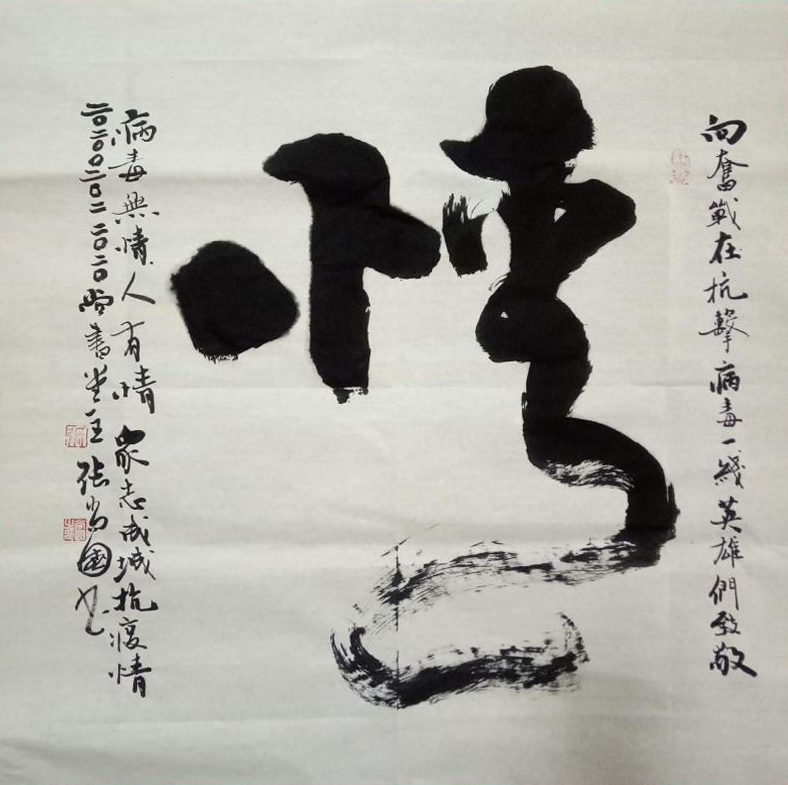 向奮戰在抗擊病毒一綫英雄們致敬
病毒無情人有情眾志成城抗疫情
二〇二〇〇二〇二二〇二〇尚書堂主張尚國書